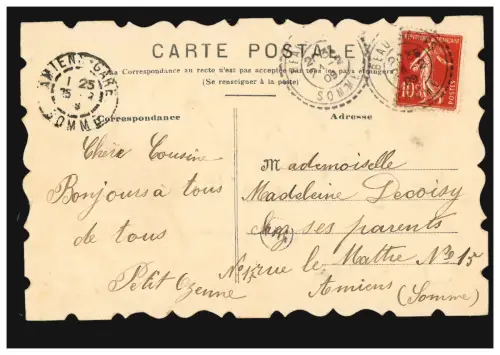 CARTE POSTALE
La Correspondance au recto n'est pas acceptée par tous les pays étrangers
(Se renseigner à la poste)
AMIENS-GARE
25
SOMME
SOMME
RÉPUBLIQUE FRANÇAISE
10c
POSTES
Correspondance
Adresse
Chère Cousine
Bonjours à tous
de tous
Petit Ozenne
Mademoiselle
Madeleine Decoisy
chez ses parents
No 15 rue le Mattre No 15
Amiens
(Somme)